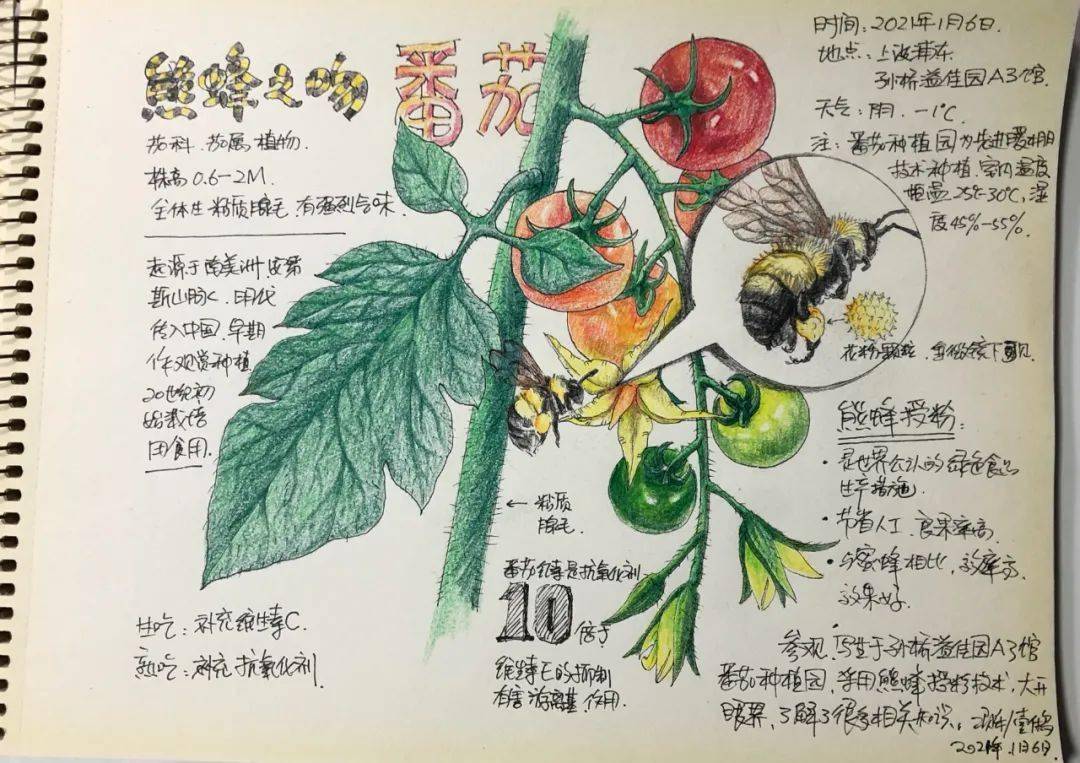 熊蜂之吻 番茄
茄科.茄属.植物.
株高0.6-2M.
全体生粘质腺毛.有强烈气味.
起源于南美洲.安第
斯山脉.明代
传入中国.早期
作观赏种植
20世纪初
始栽培
食用.
生吃:补充维生素C.
熟吃:补充抗氧化剂.
← 粘质
腺毛.
番茄红素是抗氧化剂
10倍于
维生素E的抑制
有害游离基.作用.
时间:2021年1月6日.
地点:上海浦东
孙桥益佳园A3馆.
天气:阴. -1℃
注:番茄种植园为先进暖棚
技术种植.室内温度
恒温25℃-30℃,湿
度45%-55%.
花粉颗粒.显微镜下可见.
熊蜂授粉:
·是世界公认的绿色食品
生产措施.
·节省人工.良果率高.
·与蜜蜂相比,效率高.
效果好.
参观.写生于孙桥益佳园A3馆
番茄种植园.采用熊蜂授粉技术,大开
眼界.了解了很多相关知识.
2021年.1月6日.